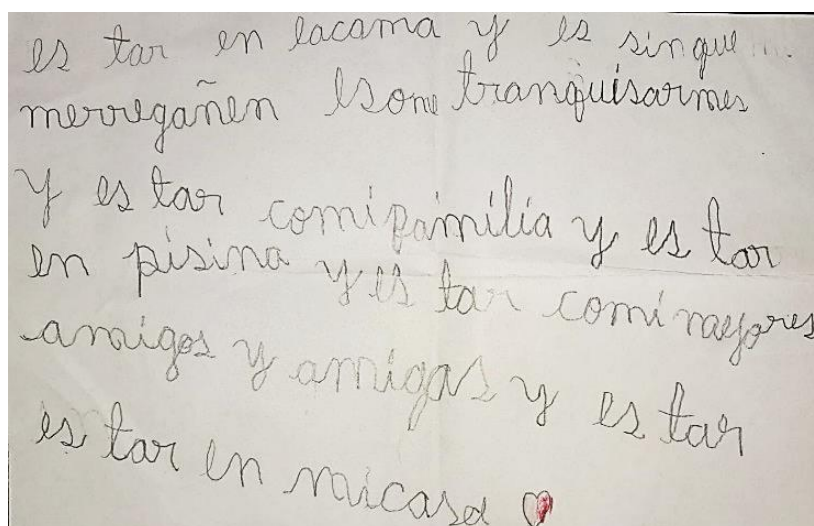 es tar en lacama y es sin que
merregañen esome tranquisarmes
y es tar comipamilia y es tar
en pisina y es tar comi mayores
amigos y amigas y es tar
es tar en micasa